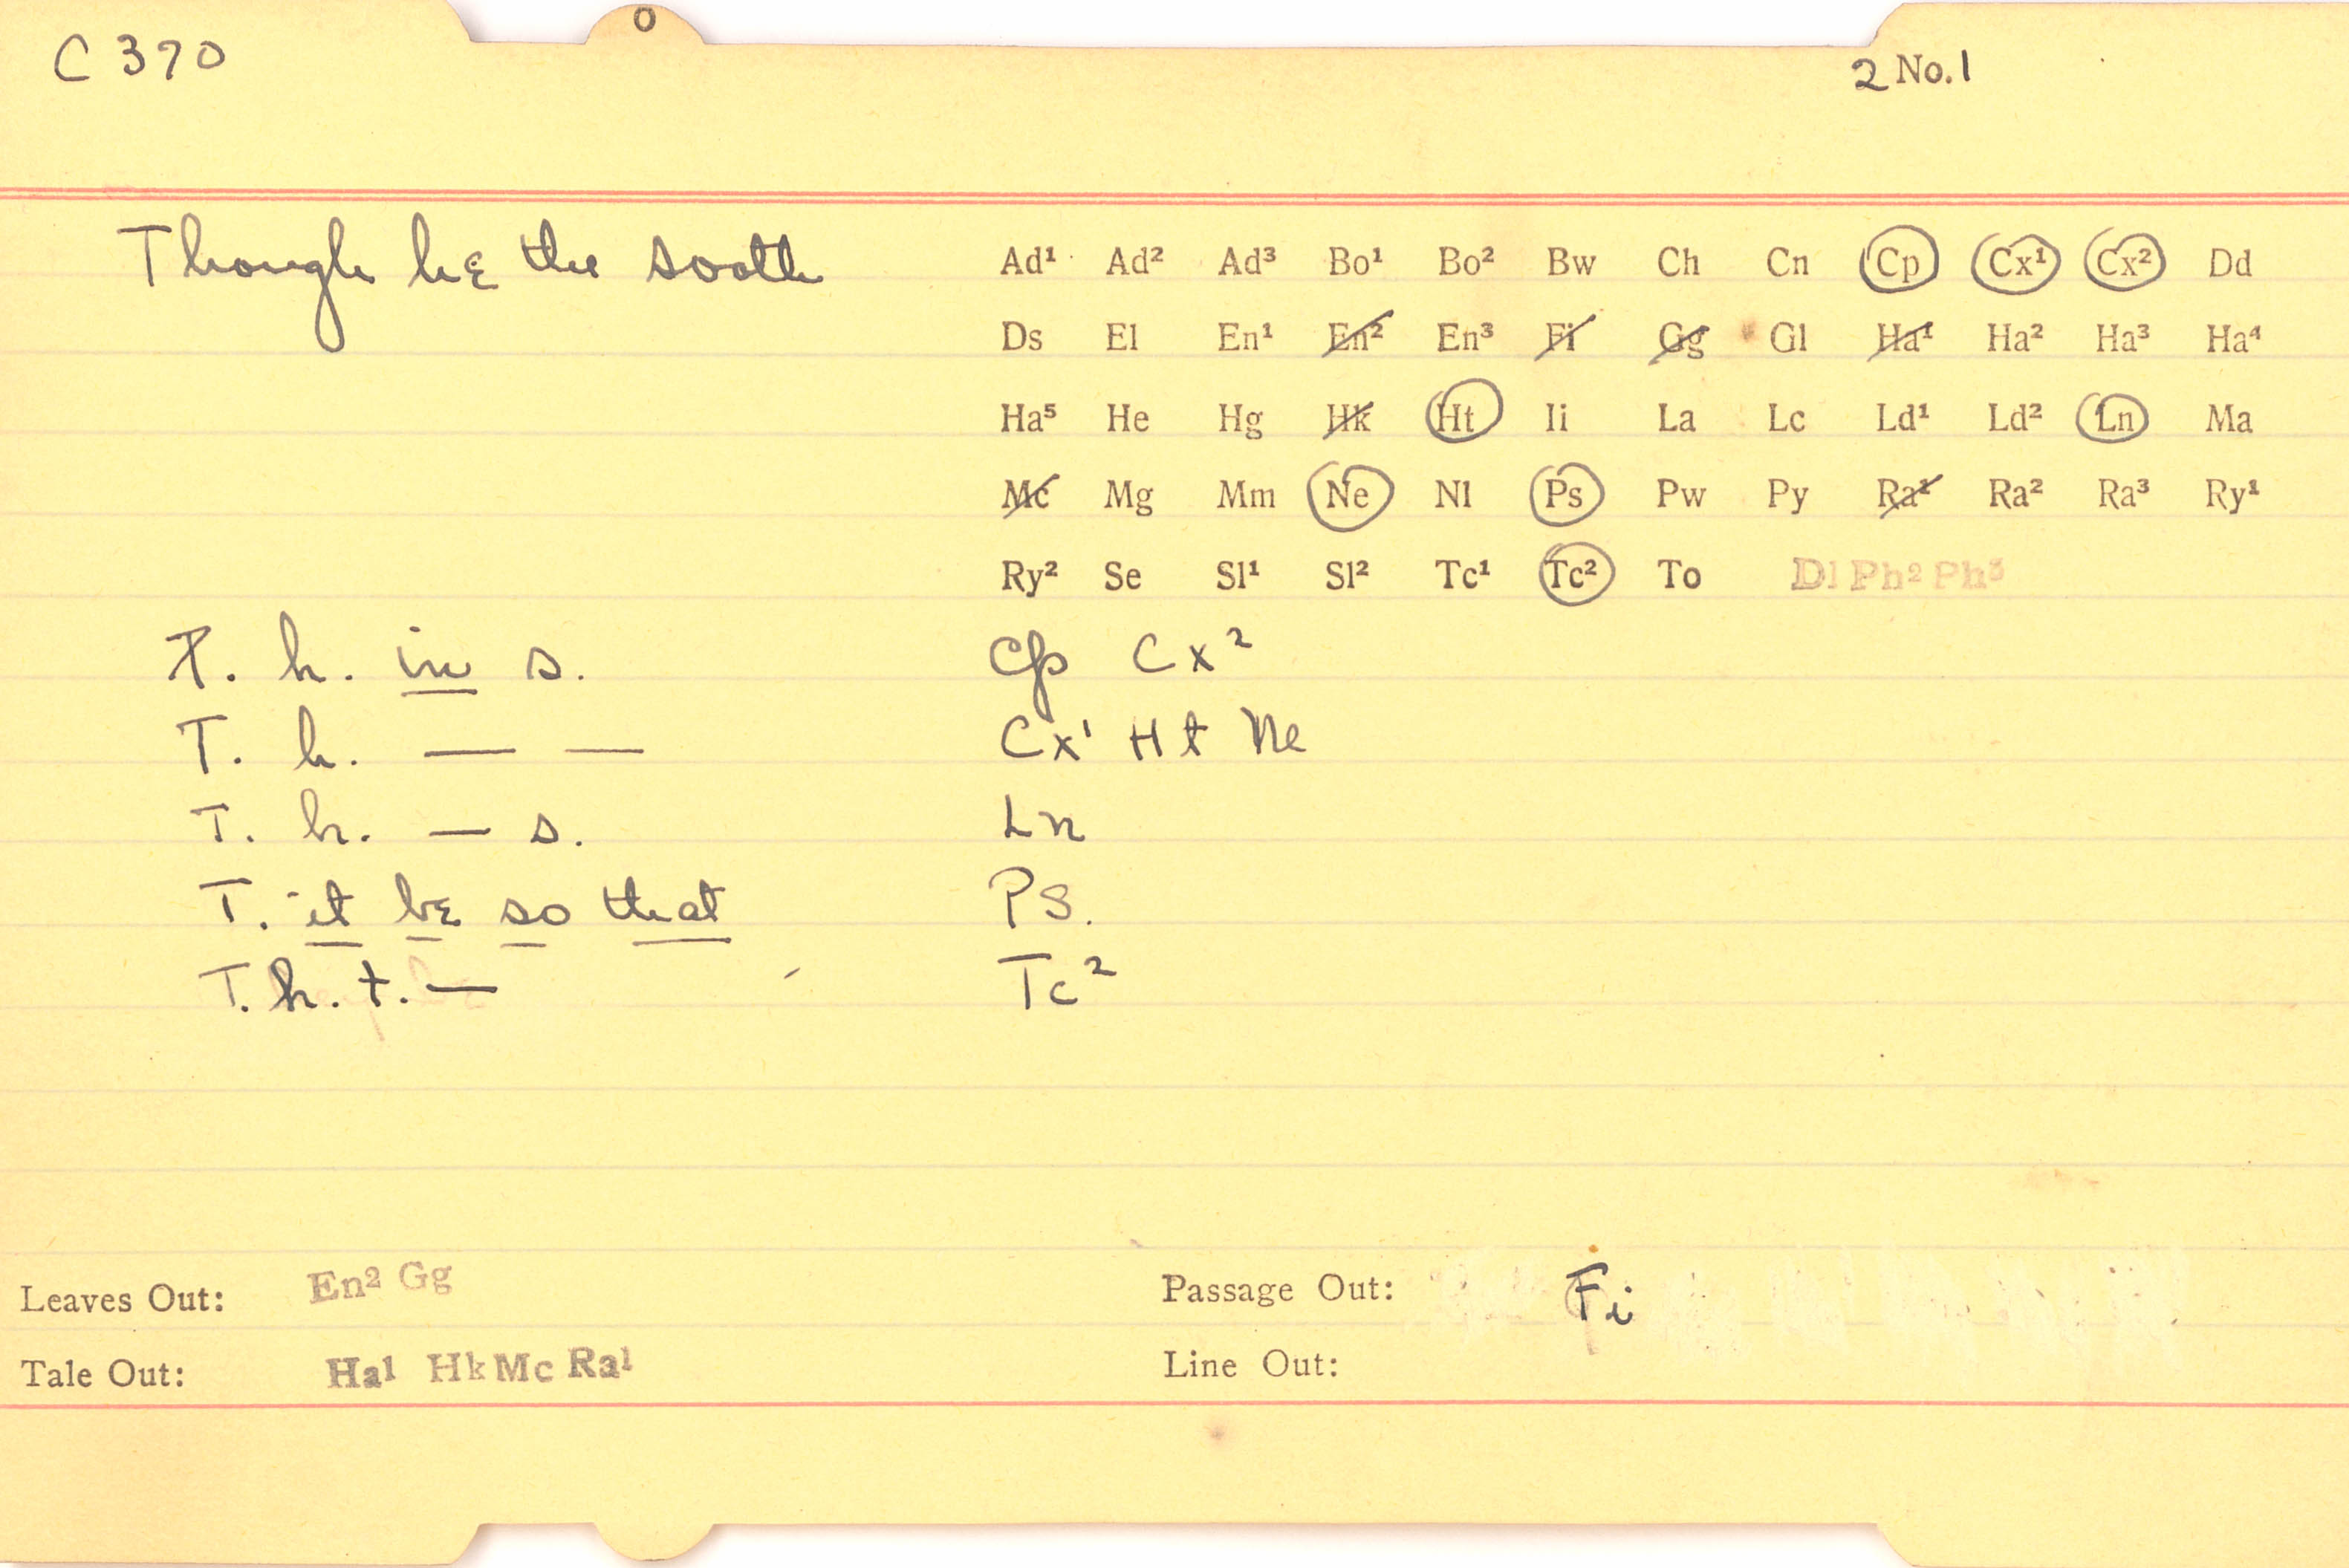 O
C 370
2 No. 1
Though he the sooth
Ad¹ Ad² Ad³ Bo¹ Bo² Bw Ch Cn Cp Cx¹ Cx² Dd
Ds El En¹ En² En³ Fi Gg Gl Ha¹ Ha² Ha³ Ha⁴
Ha⁵ He Hg Hk Ht Ii La Lc Ld¹ Ld² Ln Ma
Mc Mg Mm Ne Nl Ps Pw Py Ra¹ Ra² Ra³ Ry¹
Ry² Se Sl¹ Sl² Tc¹ Tc² To Dl Ph² Ph³
T. h. in s. Cp Cx²
T. h. — — Cx¹ Ht Ne
T. h. — s. Ln
T. it be so that Ps.
T. h. t. — Tc²
Leaves Out: En² Gg
Passage Out: Fi
Tale Out: Ha¹ Hk Mc Ra¹
Line Out: